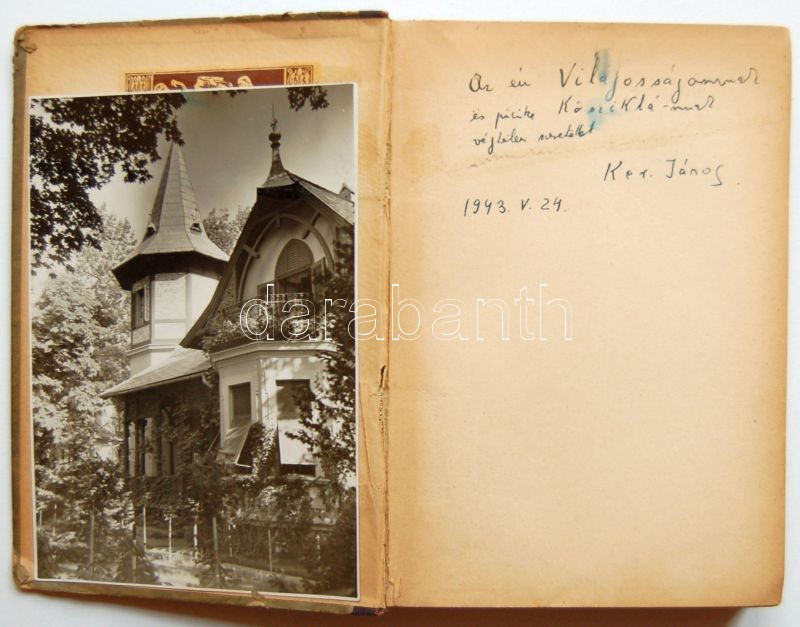 Az én Világosságomnak
és picike Kősziklá-mnak
végtelen szeretettel
Ker. János
1943. V. 24.
darabanth